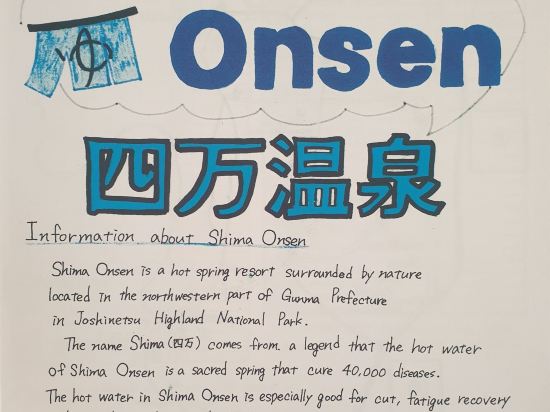 ゆ Onsen
四万温泉
Information about Shima Onsen
Shima Onsen is a hot spring resort surrounded by nature
located in the northwestern part of Gunma Prefecture
in Joshinetsu Highland National Park.
The name Shima (四万) comes from a legend that the hot water
of Shima Onsen is a sacred spring that cure 40,000 diseases.
The hot water in Shima Onsen is especially good for cut, fatigue recovery